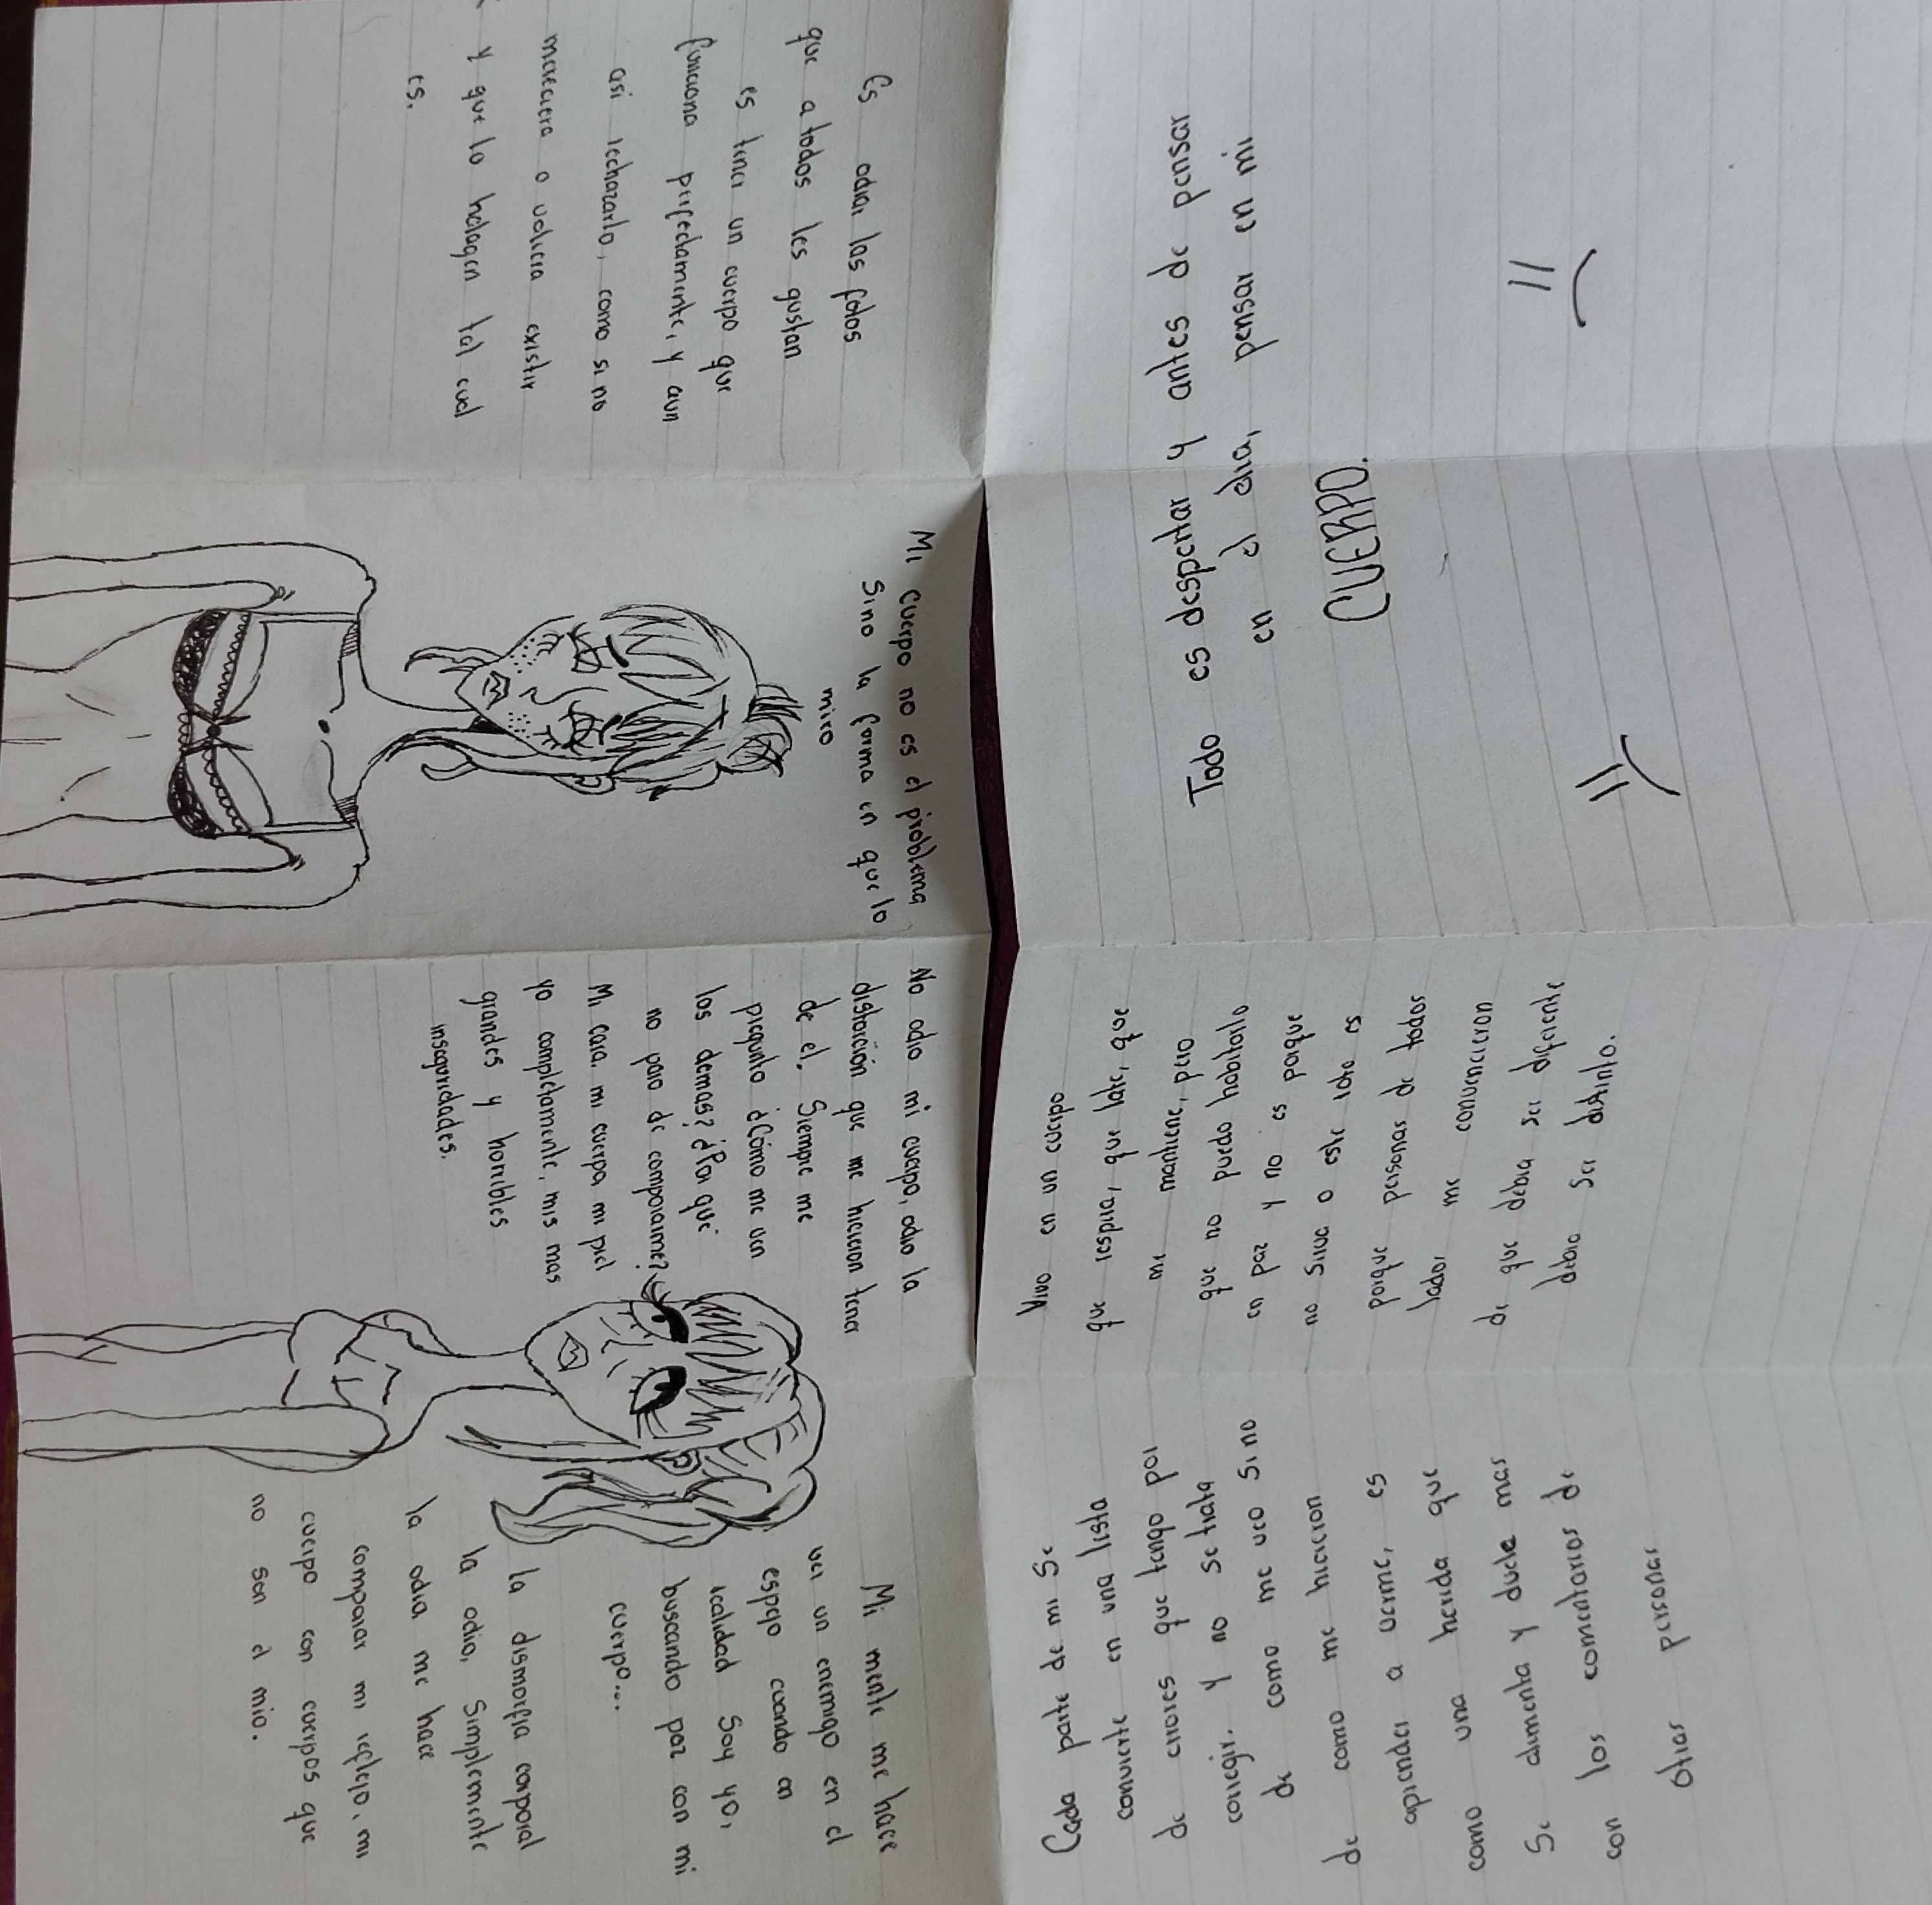 Todo es despertar y antes de pensar
en el dia, pensar en mi
CUERPO.
Vivo en un cuerpo
que respira, que late, que
me mantiene, pero
que no puedo habitarlo
en paz y no es porque
no sirva o este roto es
porque personas de todos
lados me convencieron
de que debia ser diferente
debia ser distinto.
Cada parte de mi se
convierte en una lista
de errores que tengo por
corregir. Y no se trata
de como me veo si no
de como me hicieron
aprender a verme, es
como una herida que
se alimenta y duele mas
con los comentarios de
otras personas
Mi mente me hace
ver un enemigo en el
espejo cuando en
realidad soy yo,
buscando paz con mi
cuerpo...
la dismorfia corporal
la odio, simplemente
la odio me hace
comparar mi reflejo, mi
cuerpo con cuerpos que
no son el mio.
No odio mi cuerpo, odio la
distorción que me hicieron tener
de el. Siempre me
pregunto ¿Cómo me ven
los demas? ¿Por qué
no paro de compararme?
Mi cara, mi cuerpo, mi piel
yo completamente, mis mas
grandes y horribles
inseguridades.
Mi cuerpo no es el problema
Sino la forma en que lo
miro
Es odiar las fotos
que a todos les gustan
es tener un cuerpo que
funciona perfectamente, y aun
asi rechazarlo, como si no
mereciera o valiera existir
y que lo halagen tal cual
es.